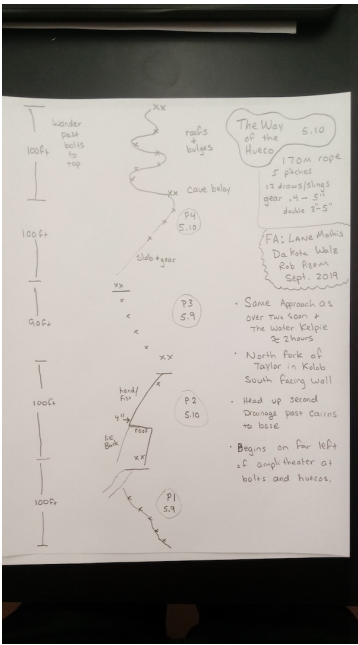 Wander
past
bolts
to
top
100ft
100ft
90ft
100ft
100ft
xx
roofs
+
bulges
Cave belay
xx
P4
5.10
Slab + gear
xx
P3
5.9
xx
hand/
fist
4"
roof
P2
5.10
xx
P1
5.9
The Way
of the
Hueco
5.10
170m rope
5 pitches
12 draws/slings
gear .4 - 5"
double 3"-5"
FA: Lane Mathis
Dakota Walz
Rob Pizem
Sept. 2019
• Same Approach as
over Two soon +
The Water Kelpie
≈ 2hours
• North fork of
Taylor in Kolob
South Facing wall
• Head up second
Drainage past Cairns
to base
• Begins on far left
of amphiteater at
bolts and huecos.